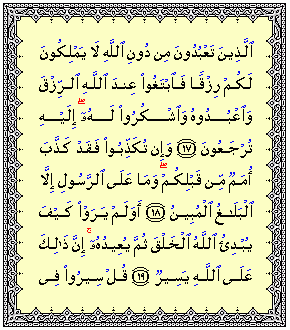 ٱلَّذِينَ تَعْبُدُونَ مِن دُونِ ٱللَّهِ لَا يَمْلِكُونَ
لَكُمْ رِزْقًا فَٱبْتَغُوا۟ عِندَ ٱللَّهِ ٱلرِّزْقَ
وَٱعْبُدُوهُ وَٱشْكُرُوا۟ لَهُۥٓ ۖ إِلَيْهِ
تُرْجَعُونَ ﴿١٧﴾ وَإِن تُكَذِّبُوا۟ فَقَدْ كَذَّبَ
أُمَمٌ مِّن قَبْلِكُمْ ۖ وَمَا عَلَى ٱلرَّسُولِ إِلَّا
ٱلْبَلَـٰغُ ٱلْمُبِينُ ﴿١٨﴾ أَوَلَمْ يَرَوْا۟ كَيْفَ
يُبْدِئُ ٱللَّهُ ٱلْخَلْقَ ثُمَّ يُعِيدُهُۥٓ ۚ إِنَّ ذَٰلِكَ
عَلَى ٱللَّهِ يَسِيرٌ ﴿١٩﴾ قُلْ سِيرُوا۟ فِى